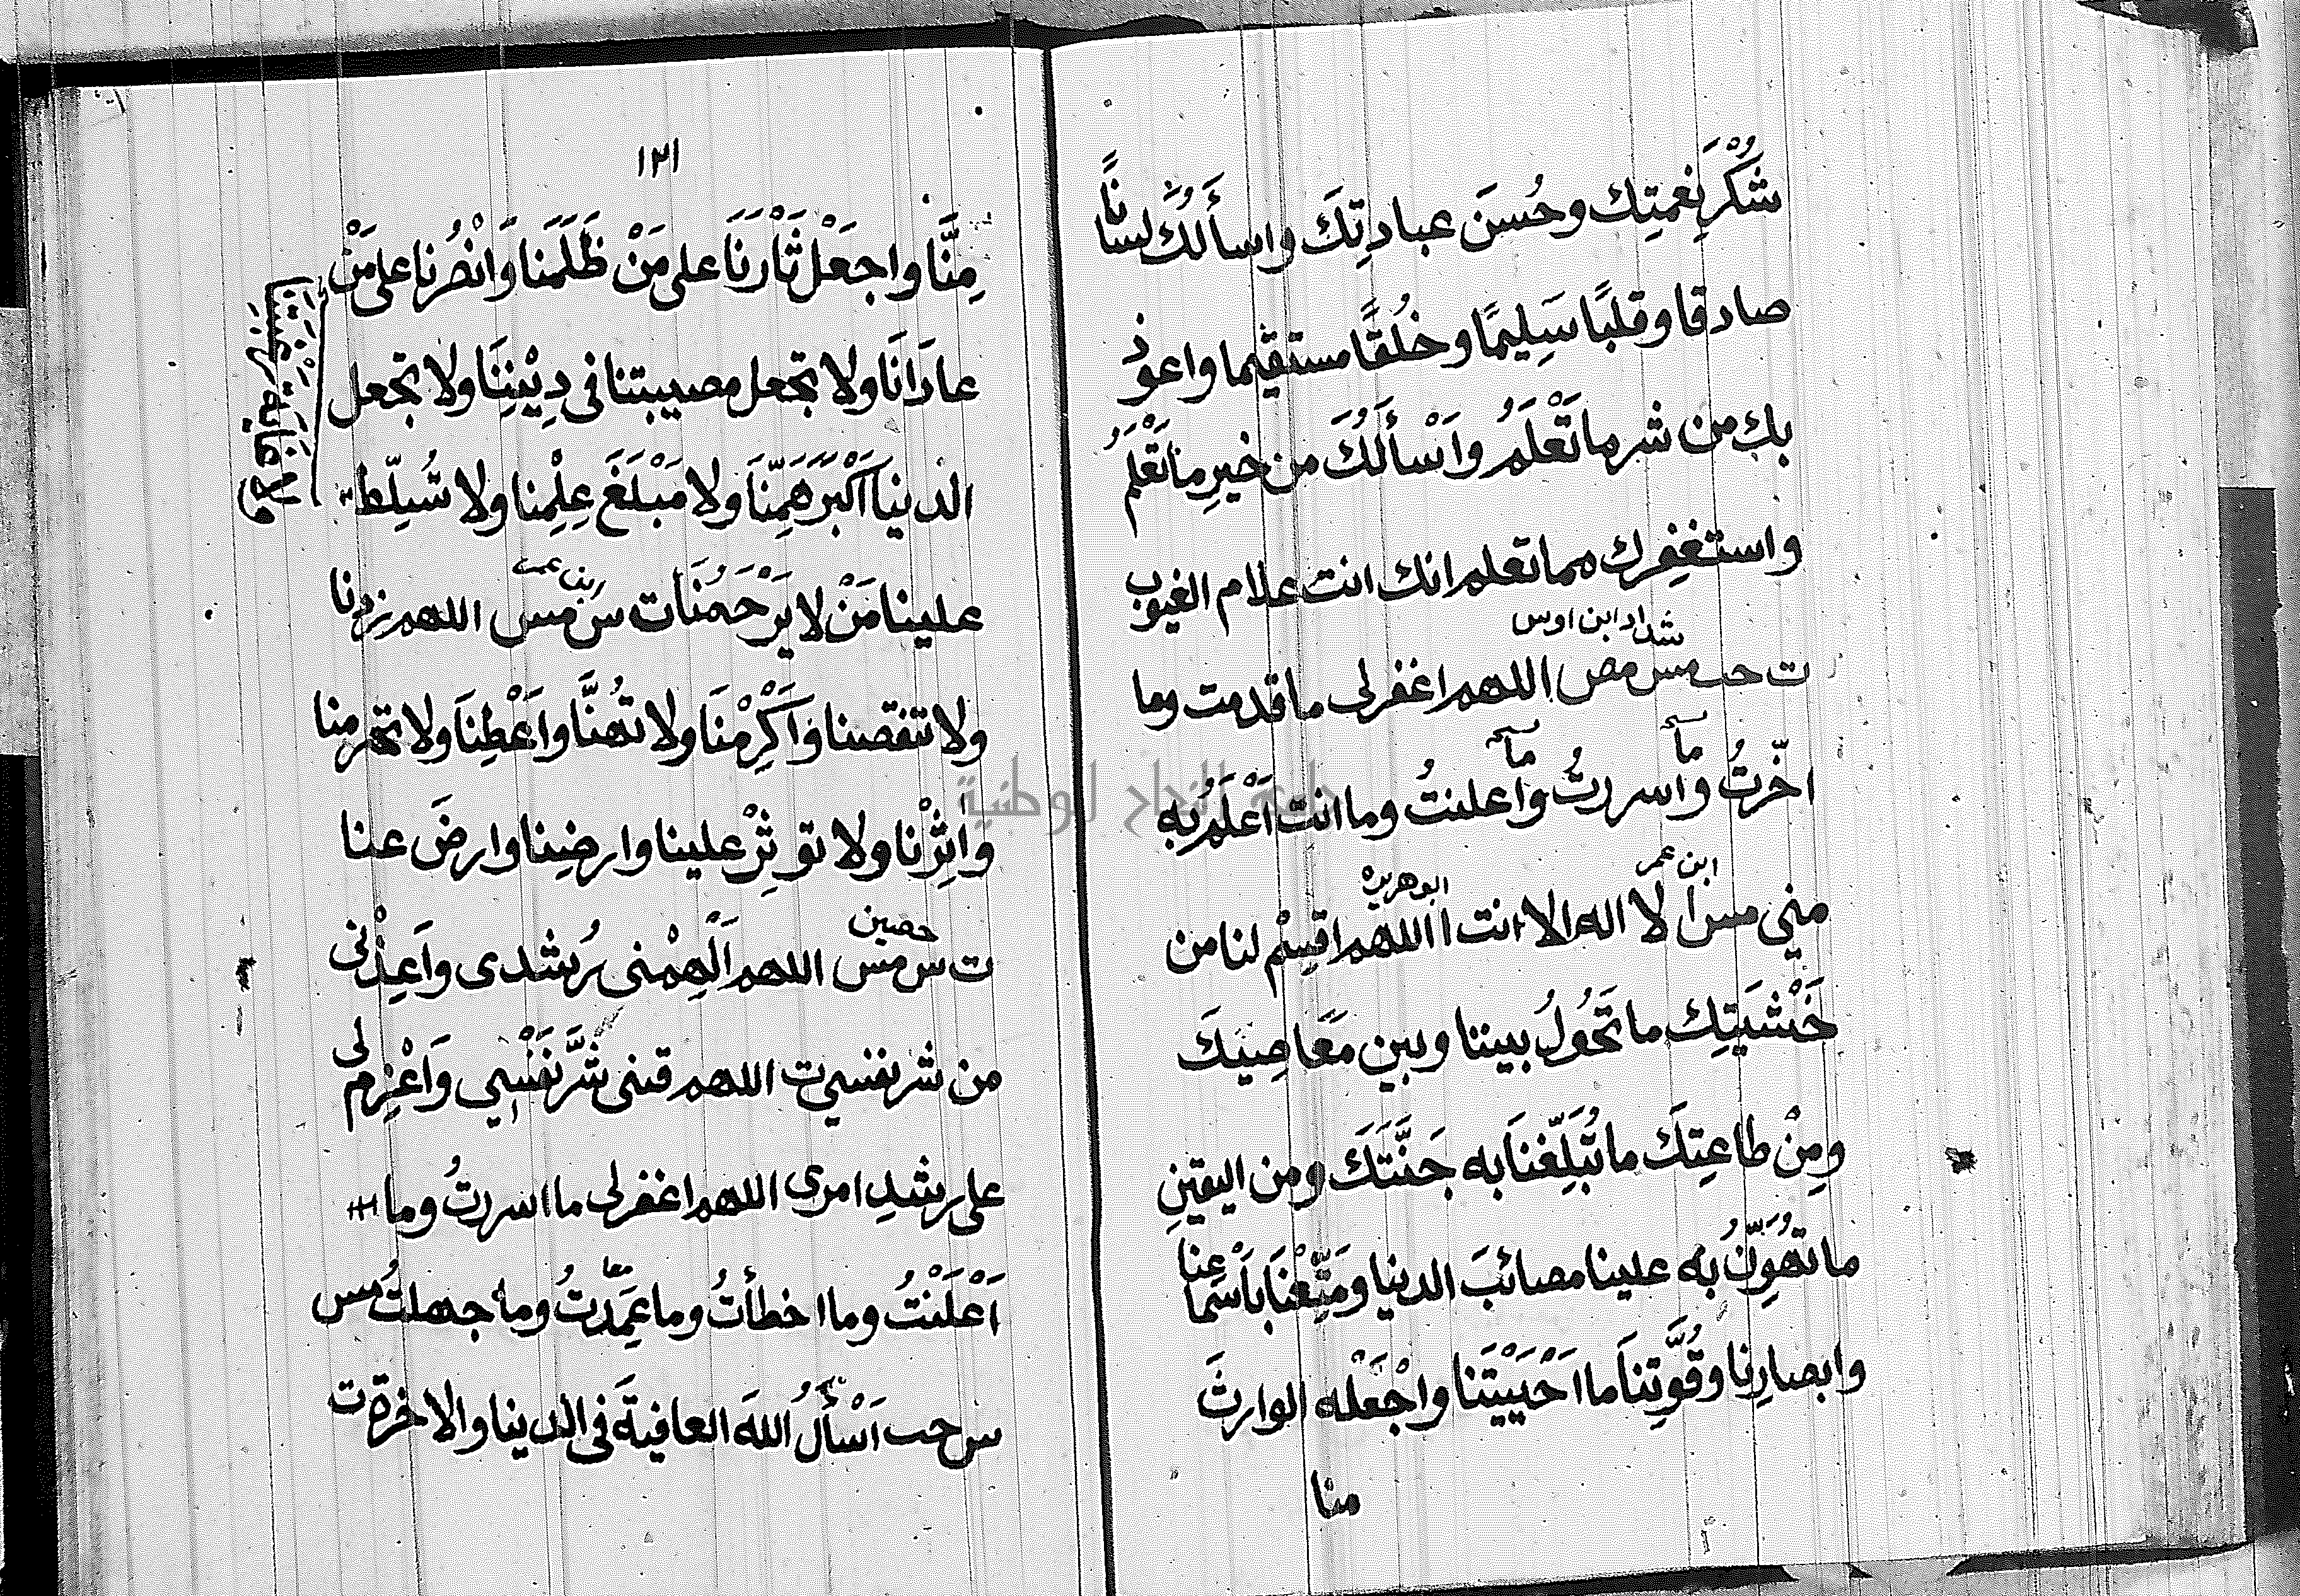 شُكْرَ نِعْمَتِك وحُسْنَ عبادتِكَ واسأَلُكَ لسانًا
صادقا وقلبًا سَلِيمًا وخُلُقًا مستقيما واعوذ
بك من شر ما تَعْلَمُ واَسْأَلُكَ من خيرِ ما تَعْلَمُ
واستغفِرك مما تعلم انك انت علام الغيوب
شداد ابن اوس
ت حب مس مص اللهم اغفر لى ما قدمت وما
ما ما
اخّرتُ واسررتُ واعلنتُ وما انت اَعْلَمُ به
ابن عمر
ابو هريره
مني مس ا لا اله الا انت ا اللهم اقسِمْ لنا من
خَشْيَتِك ما تَحُولُ بيننا وبين مَعَاصِيكَ
ومِنْ طاعتِكَ ما تُبَلِّغُنَا به جَنَّتَكَ ومن اليقينِ
ما تُهَوِّنُ به علينا مصائبَ الدنيا ومَتِّعْنَا بأَسْماعِنا
وابصارِنا وقُوَّتِنَا ما اَحْيَيْتَنا واجْعَلْه الوارثَ
منا
١٢١
مِنَّا واجعَلْ ثَأْرَنَا على مَنْ ظَلَمَنا وَانْصُرْنا على مَنْ
عادَانَا ولا تجعل مصيبتنا فى دِيْنِنَا ولا تجعل
الدنيا اَكْبَرَ هَمِّنَا ولا مَبْلَغَ عِلْمِنا ولا تُسَلِّط
ولا غاية رغبتنا
علينا مَنْ لا يَرْحَمُنَا ت س مس اللهم زدنا
ولا تنقصنا وَاَكْرِمْنَا ولا تُهنَّا واَعْطِنَا ولا تحرمنا
واٰثِرْنا ولا تؤثِرْ علينا وارضِنا وارضَ عنا
حصين
ت س مس اللهم اَلْهِمْنى رُشدى واَعِذْنى
من شر نفسي ت اللهم قنى شَرَّ نَفْسِي وَاَعْزِم لى
على رشدِ امرى اللهم اغفر لى ما اسررتُ وما
اَعْلَنْتُ وما اخطأتُ وما عمدتُ وما جهلتُ مس
س حب اَسْأَلُ اللهَ العافيةَ فى الدنيا والاخرة ت